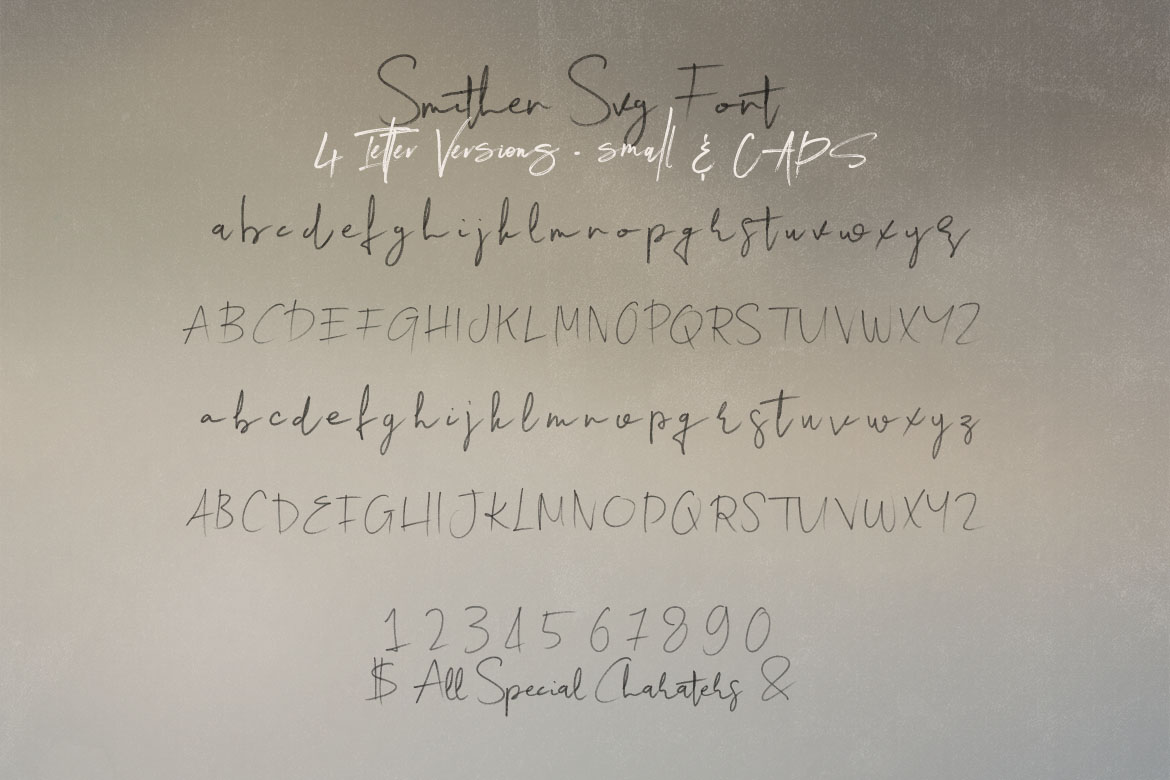 Smither Svg Font
4 letter Versions - small & CAPS
abcdefghijklmnopqrstuvwxyz
ABCDEFGHIJKLMNOPQRSTUVWXYZ
abcdefghijklmnopqrstuvwxyz
ABCDEFGHIJKLMNOPQRSTUVWXYZ
1234567890
$ All Special Charaters &